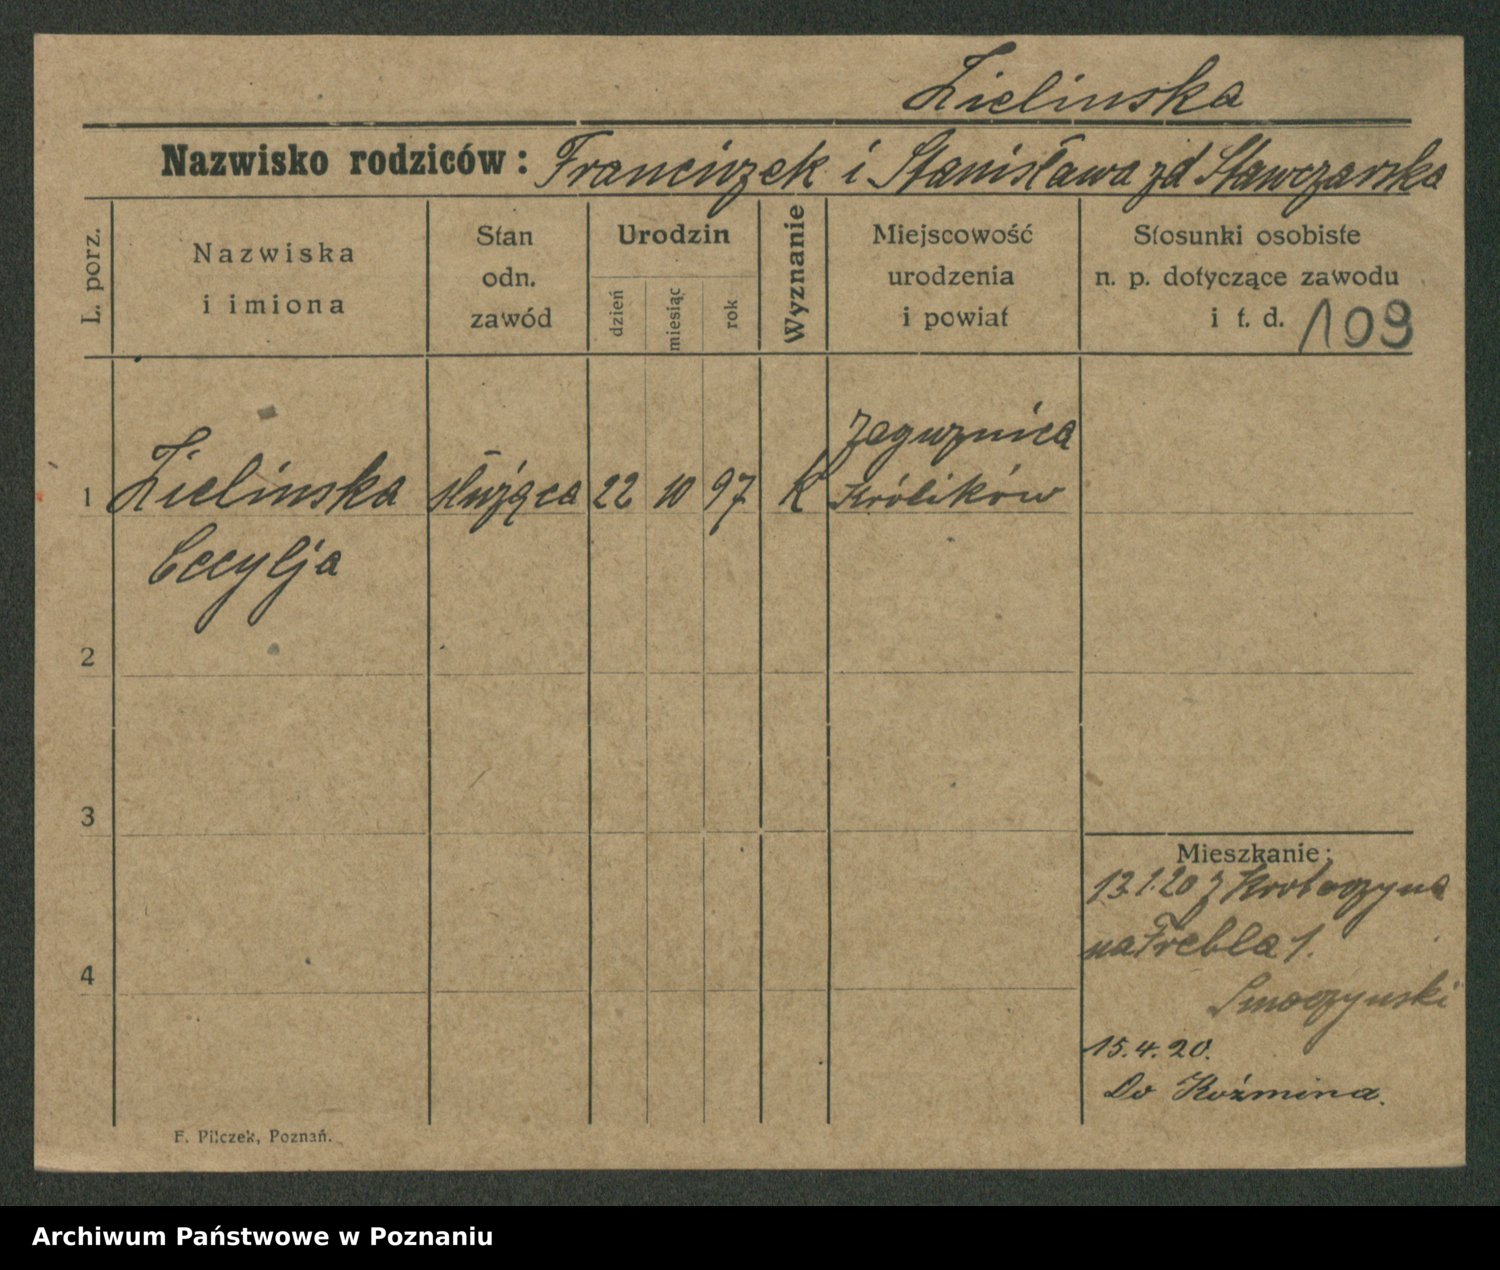 Zielinska
Nazwisko rodziców: Franciszek i Stanisława zd Stawczarska
L. porz.
Nazwiska
i imiona
Stan
odn.
zawód
Urodzin
dzień
miesiąc
rok
Wyznanie
Miejscowość
urodzenia
i powiat
Stosunki osobiste
n. p. dotyczące zawodu
i t. d. 109
Zaguznica
1 Zielinska służąca 22 10 97 K Królików
Cecylja
2
3
4
Mieszkanie:
13.1.20 z Krotoczyna
na Frebla 1.
Smoczynski
15.4.20.
Do Koźmina.
F. Pilczek, Poznań.
Archiwum Państwowe w Poznaniu